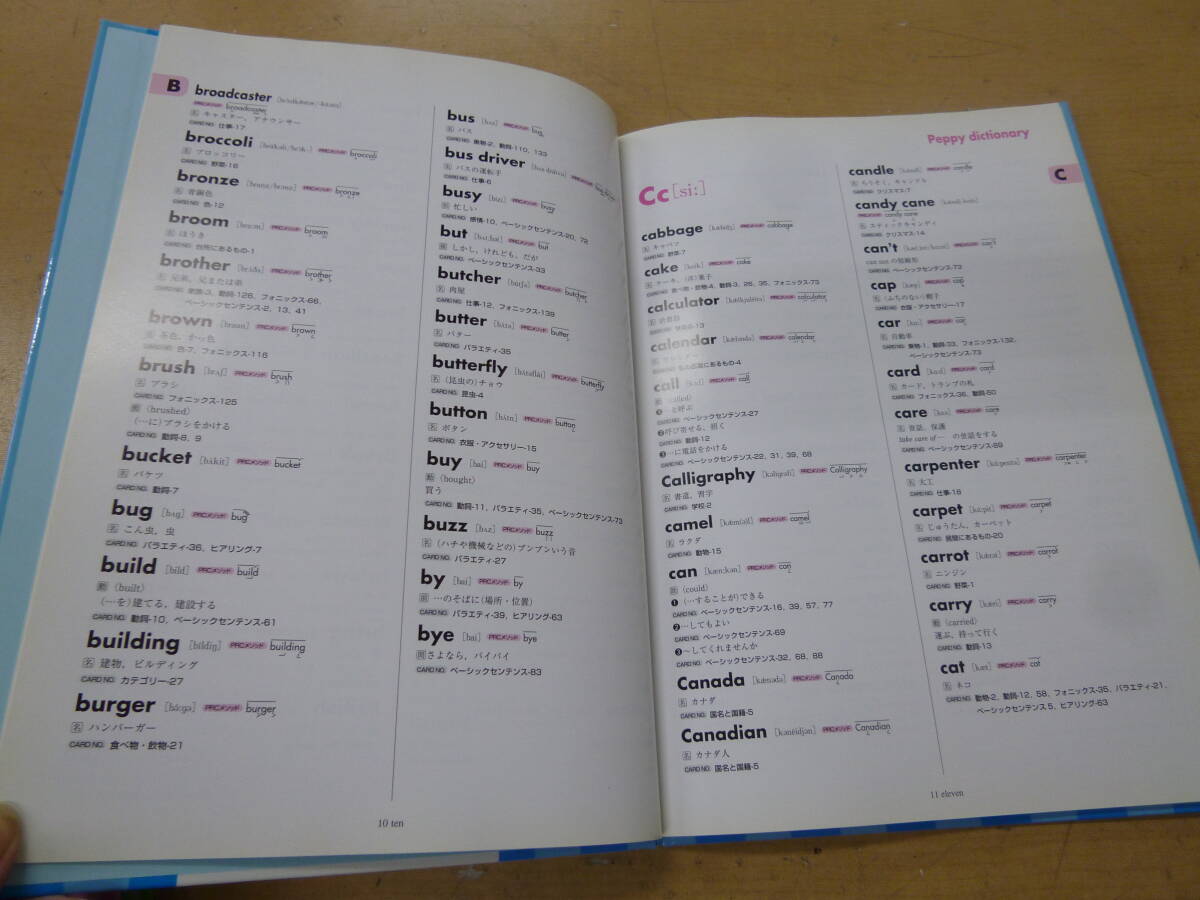 B
broadcaster
PRCメソッド broadcaster
名 キャスター，アナウンサー
CARD NO. 仕事-17
broccoli PRCメソッド broccoli
名 ブロッコリー
CARD NO. 野菜-16
bronze PRCメソッド bronze
名 青銅色
CARD NO. 色-12
broom PRCメソッド broom
名 ほうき
CARD NO. 台所にあるもの-1
brother PRCメソッド brother
名 兄弟，兄または弟
CARD NO. 家族-3，動詞-126，フォニックス-66，
ベーシックセンテンス-2，13，41
brown PRCメソッド brown
名 茶色，かっ色
CARD NO. 色-7，フォニックス-116
brush [brʌʃ] PRCメソッド brush
名 ブラシ
CARD NO. フォニックス-125
動 (brushed)
(…に)ブラシをかける
CARD NO. 動詞-8，9
bucket [bʌ́kit] PRCメソッド bucket
名 バケツ
CARD NO. 動詞-7
bug [bʌg] PRCメソッド bug
名 こん虫，虫
CARD NO. バラエティ-36，ヒアリング-7
build [bild] PRCメソッド build
動 (built)
(…を)建てる，建設する
CARD NO. 動詞-10，ベーシックセンテンス-61
building [bíldiŋ] PRCメソッド building
名 建物，ビルディング
CARD NO. カテゴリー-27
burger [bə́ːgə] PRCメソッド burger
名 ハンバーガー
CARD NO. 食べ物・飲物-21
bus [bʌs] PRCメソッド bus
名 バス
CARD NO. 乗物-2，動詞-110，133
bus driver PRCメソッド
名 バスの運転手
CARD NO. 仕事-6
busy [bízi] PRCメソッド busy
形 忙しい
CARD NO. 感情-10，ベーシックセンテンス-20，72
but PRCメソッド but
接 しかし，けれども，だが
CARD NO. ベーシックセンテンス-33
butcher [bútʃə] PRCメソッド butcher
名 肉屋
CARD NO. 仕事-12，フォニックス-139
butter [bʌ́tə] PRCメソッド butter
名 バター
CARD NO. バラエティ-35
butterfly [bʌ́təflài] PRCメソッド butterfly
名 (昆虫の)チョウ
CARD NO. 昆虫-4
button [bʌ́tn] PRCメソッド button
名 ボタン
CARD NO. 衣服・アクセサリー-15
buy [bai] PRCメソッド buy
動 (bought)
買う
CARD NO. 動詞-11，バラエティ-35，ベーシックセンテンス-73
buzz [bʌz] PRCメソッド buzz
名 (ハチや機械などの)ブンブンいう音
CARD NO. バラエティ-27
by [bai] PRCメソッド by
前 …のそばに(場所・位置)
CARD NO. バラエティ-39，ヒアリング-63
bye [bai] PRCメソッド bye
間 さよなら，バイバイ
CARD NO. ベーシックセンテンス-83
10 ten
Peppy dictionary
C
Cc [siː]
cabbage PRCメソッド cabbage
名 キャベツ
CARD NO. 野菜-7
cake [keik] PRCメソッド cake
名 ケーキ，(洋)菓子
CARD NO. 食べ物・飲物-4，動詞-3，26，35，フォニックス-75
calculator PRCメソッド calculator
名 計算器
CARD NO. 学校-13
calendar PRCメソッド calendar
名 カレンダー
にあるもの-4
call PRCメソッド call
動 (called)
❶…と呼ぶ
CARD NO. ベーシックセンテンス-27
❷呼び寄せる，招く
CARD NO. 動詞-12
❸…に電話をかける
CARD NO. ベーシックセンテンス-22，31，39，68
Calligraphy PRCメソッド Calligraphy
名 書道，習字
CARD NO. 学校-2
camel [kǽm(ə)l] PRCメソッド camel
名 ラクダ
CARD NO. 動物-15
can [kæn;kən] PRCメソッド can
助 (could)
❶ (…することが)できる
CARD NO. ベーシックセンテンス-16，39，57，77
❷…してもよい
CARD NO. ベーシックセンテンス-69
❸〜してくれませんか
CARD NO. ベーシックセンテンス-32，68，88
Canada [kǽnədə] PRCメソッド Canada
名 カナダ
CARD NO. 国名と国籍-5
Canadian [kənéidjən] PRCメソッド Canadian
名 カナダ人
CARD NO. 国名と国籍-5
candle PRCメソッド candle
名 ろうそく，キャンドル
CARD NO. クリスマス-7
candy cane
PRCメソッド candy cane
名 スティックキャンディ
CARD NO. クリスマス-14
can't PRCメソッド can't
can not の短縮形
CARD NO. ベーシックセンテンス-73
cap PRCメソッド cap
名 (ふちのない)帽子
CARD NO. 衣服・アクセサリー-17
car PRCメソッド car
名 自動車
CARD NO. 乗物-1，動詞-33，フォニックス-132，
ベーシックセンテンス-73
card PRCメソッド card
名 カード，トランプの札
CARD NO. フォニックス-36，動詞-50
care PRCメソッド care
名 世話，保護
take care of― の世話をする
CARD NO. ベーシックセンテンス-89
carpenter PRCメソッド carpenter
名 大工
CARD NO. 仕事-16
carpet PRCメソッド carpet
名 じゅうたん，カーペット
CARD NO. 居間にあるもの-20
carrot PRCメソッド carrot
名 ニンジン
CARD NO. 野菜-1
carry [kǽri] PRCメソッド carry
動 (carried)
運ぶ，持って行く
CARD NO. 動詞-13
cat [kæt] PRCメソッド cat
名 ネコ
CARD NO. 動物-2，動詞-12，58，フォニックス-35，バラエティ-21，
ベーシックセンテンス 5，ヒアリング-63
11 eleven